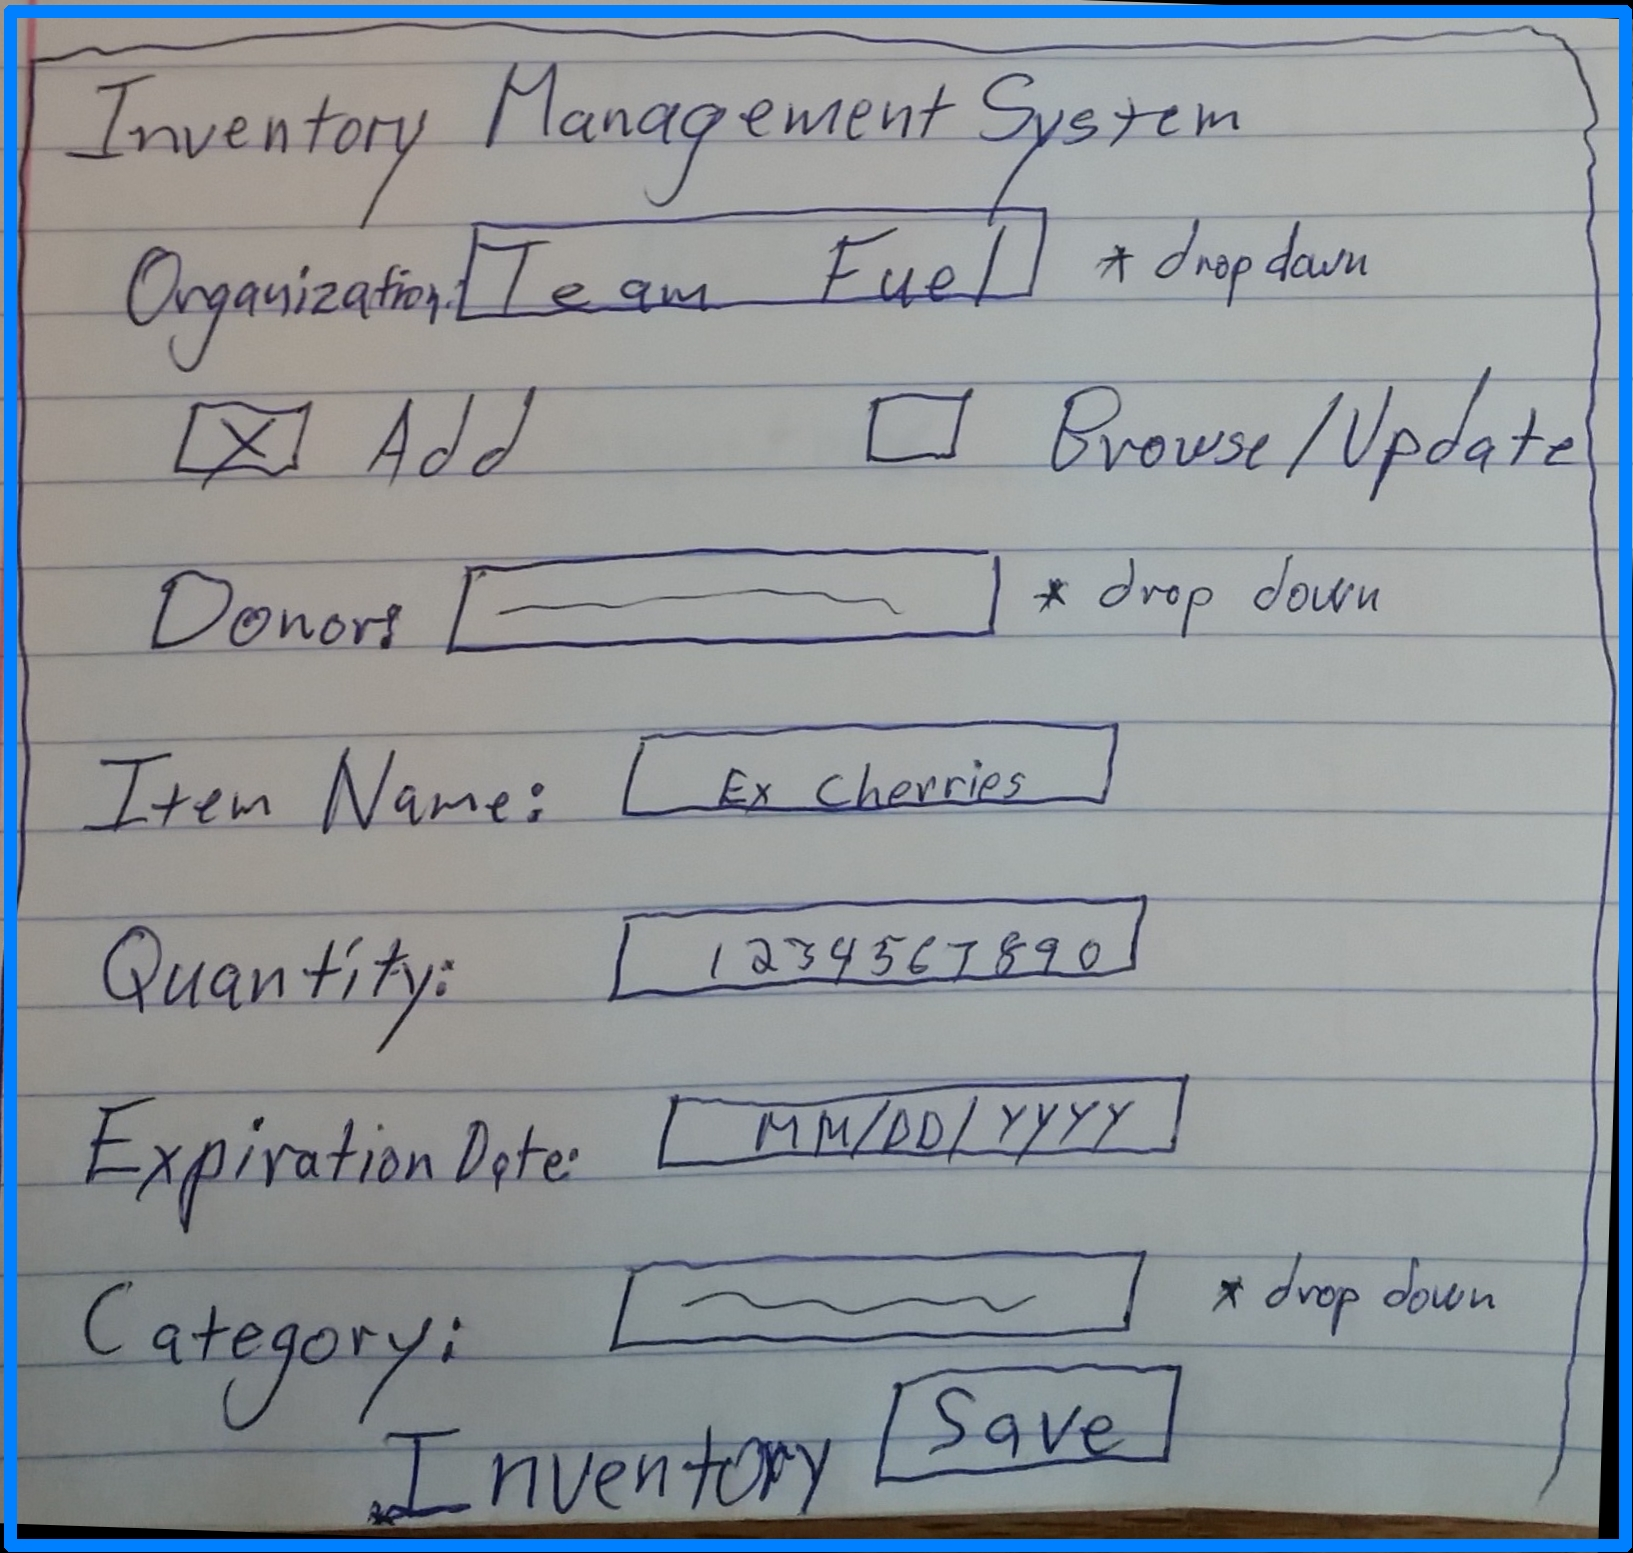 Inventory Management System
Organization: Team Fuel * drop down
X Add Browse/Update
Donors * drop down
Item Name: Ex Cherries
Quantity: 1234567890
Expiration Date: MM/DD/YYYY
Category: * drop down
Inventory Save